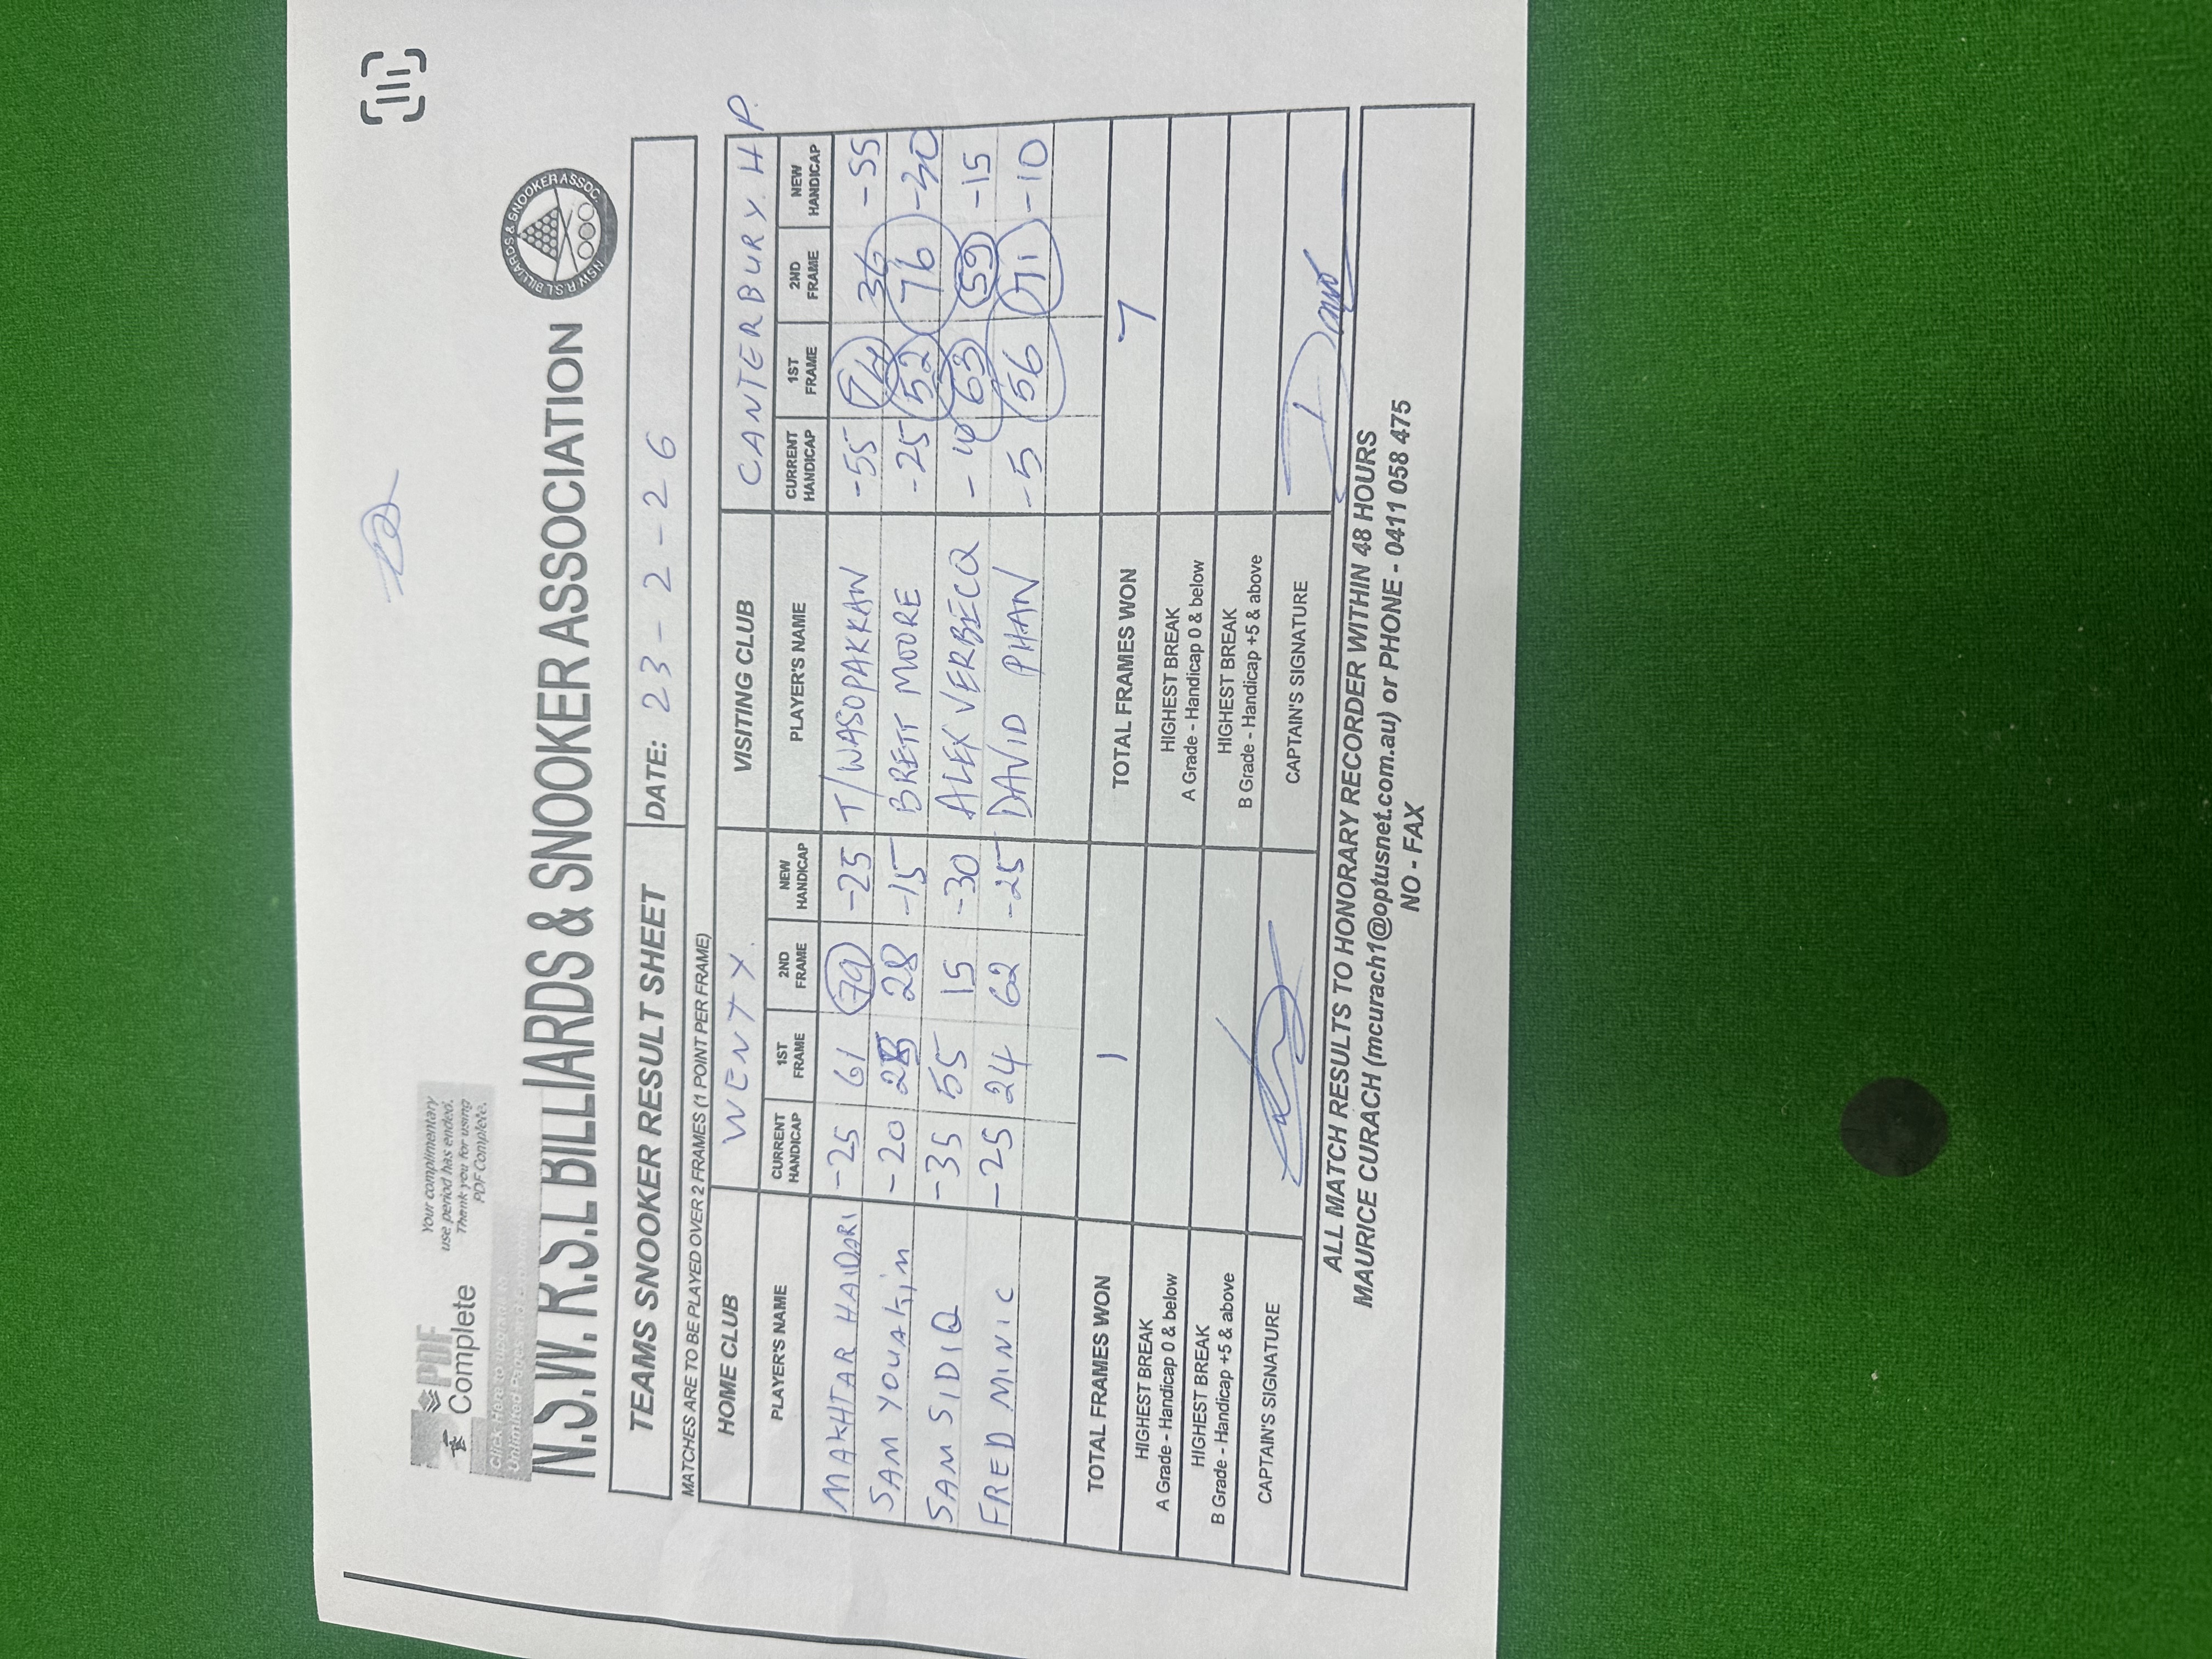 PDF
Complete
Your complimentary
use period has ended.
Thank you for using
PDF Complete.
Click Here to upgrade to
Unlimited Pages and
N.S.W. R.S.L BILLIARDS & SNOOKER ASSOCIATION
N.S.W. R.S.L BILLIARDS & SNOOKER ASSOC.
TEAMS SNOOKER RESULT SHEET DATE: 23-2-26
MATCHES ARE TO BE PLAYED OVER 2 FRAMES (1 POINT PER FRAME)
HOME CLUB WENTY. VISITING CLUB CANTERBURY. H P.
PLAYER'S NAME CURRENT HANDICAP 1ST FRAME 2ND FRAME NEW HANDICAP PLAYER'S NAME CURRENT HANDICAP 1ST FRAME 2ND FRAME NEW HANDICAP
MAKHTAR HAIDARI -25 61 79 -25 T/WASOPAKKAN -55 74 36 -55
SAM YOUAKIM -20 28 28 -15 BRETT MOORE -25 52 76 -30
SAM SIDIQ -35 55 15 -30 ALEX VERBECQ 63 59 -15
FRED MINIC -25 24 62 -25 DAVID PHAN -5 56 71 -10
TOTAL FRAMES WON 1 TOTAL FRAMES WON 7
HIGHEST BREAK HIGHEST BREAK
A Grade - Handicap 0 & below A Grade - Handicap 0 & below
HIGHEST BREAK HIGHEST BREAK
B Grade - Handicap +5 & above B Grade - Handicap +5 & above
CAPTAIN'S SIGNATURE CAPTAIN'S SIGNATURE
ALL MATCH RESULTS TO HONORARY RECORDER WITHIN 48 HOURS
MAURICE CURACH (mcurach1@optusnet.com.au) or PHONE - 0411 058 475
NO - FAX